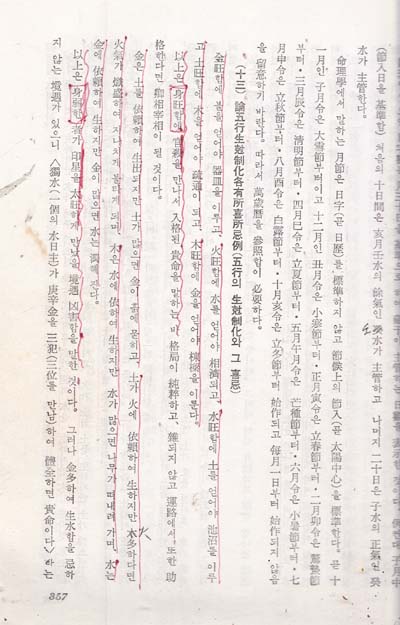 (節入日을 基準함) 처음의 十日間은 亥月壬水의 餘氣인 癸水가 主管하고 나머지 二十日은 子水의 正氣인 癸
水가 主管한다.
命理學에서 말하는 月節은 日字(곧 日歷)를 標準하지 않고 節候上의 節入(곧 太陽中心)을 標準한다. 곧 十
一月인 子月令은 大雪節부터・十二月인 丑月令은 小寒節부터・正月寅令은 立春節부터・二月卯令은 驚蟄節
부터・三月辰令은 淸明節부터・四月巳令은 立夏節부터・五月午月令은 芒種節부터・六月令은 小暑節부터・七
月申令은 立秋節부터・八月酉令은 白露節부터・十月亥令은 立冬節부터 始作되고 每月一日부터 始作되지 않음
을 留意하기 바란다. 따라서 萬歲曆을 參照함이 必要하다.
(十三) 論五行生尅制化各有所喜所忌例(五行의 生尅制化와 그 喜忌)
金旺함에 불을 얻어야 器皿을 이루고, 火旺함에 水를 얻어야 相濟되고, 水旺함에 土를 얻어야 池沼를 이루
고 土旺함에 木을 얻어야 疏通이 되고, 木旺함에 金을 얻어야 棟樑을 이룬다.
以上은 身旺함에 官殺을 만나서 入格된 貴命을 말하는바 格局이 純粹하고, 雜되지 않고 運路에서 또한 助
格한다면 卿相宰相이 될 것이다.
金은 土를 依賴하여 生出되지만 土가 많으면 金이 묻히고, 土가 火에 依하여 生하지만 木多하다면 火
火氣가 熾盛하여 지나치게 불타게 되며, 木은 水에 依하여 生하지만 水가 많으면 나무가 떠내려 가며, 水는
金에 依賴하여 生하지만 金이 많으면 水는 濁해 진다.
以上은 身弱한 者가 印星을 太旺하게 만났을 境遇 凶害함을 말한 것이다. 그러나 金多하여 生水함을 忌하
지 않는 境遇가 있으니 〈獨水一個의 水日主〉가 庚辛金을 三犯(三位를 만남)하여 體全하면 貴命이다〉라는
357